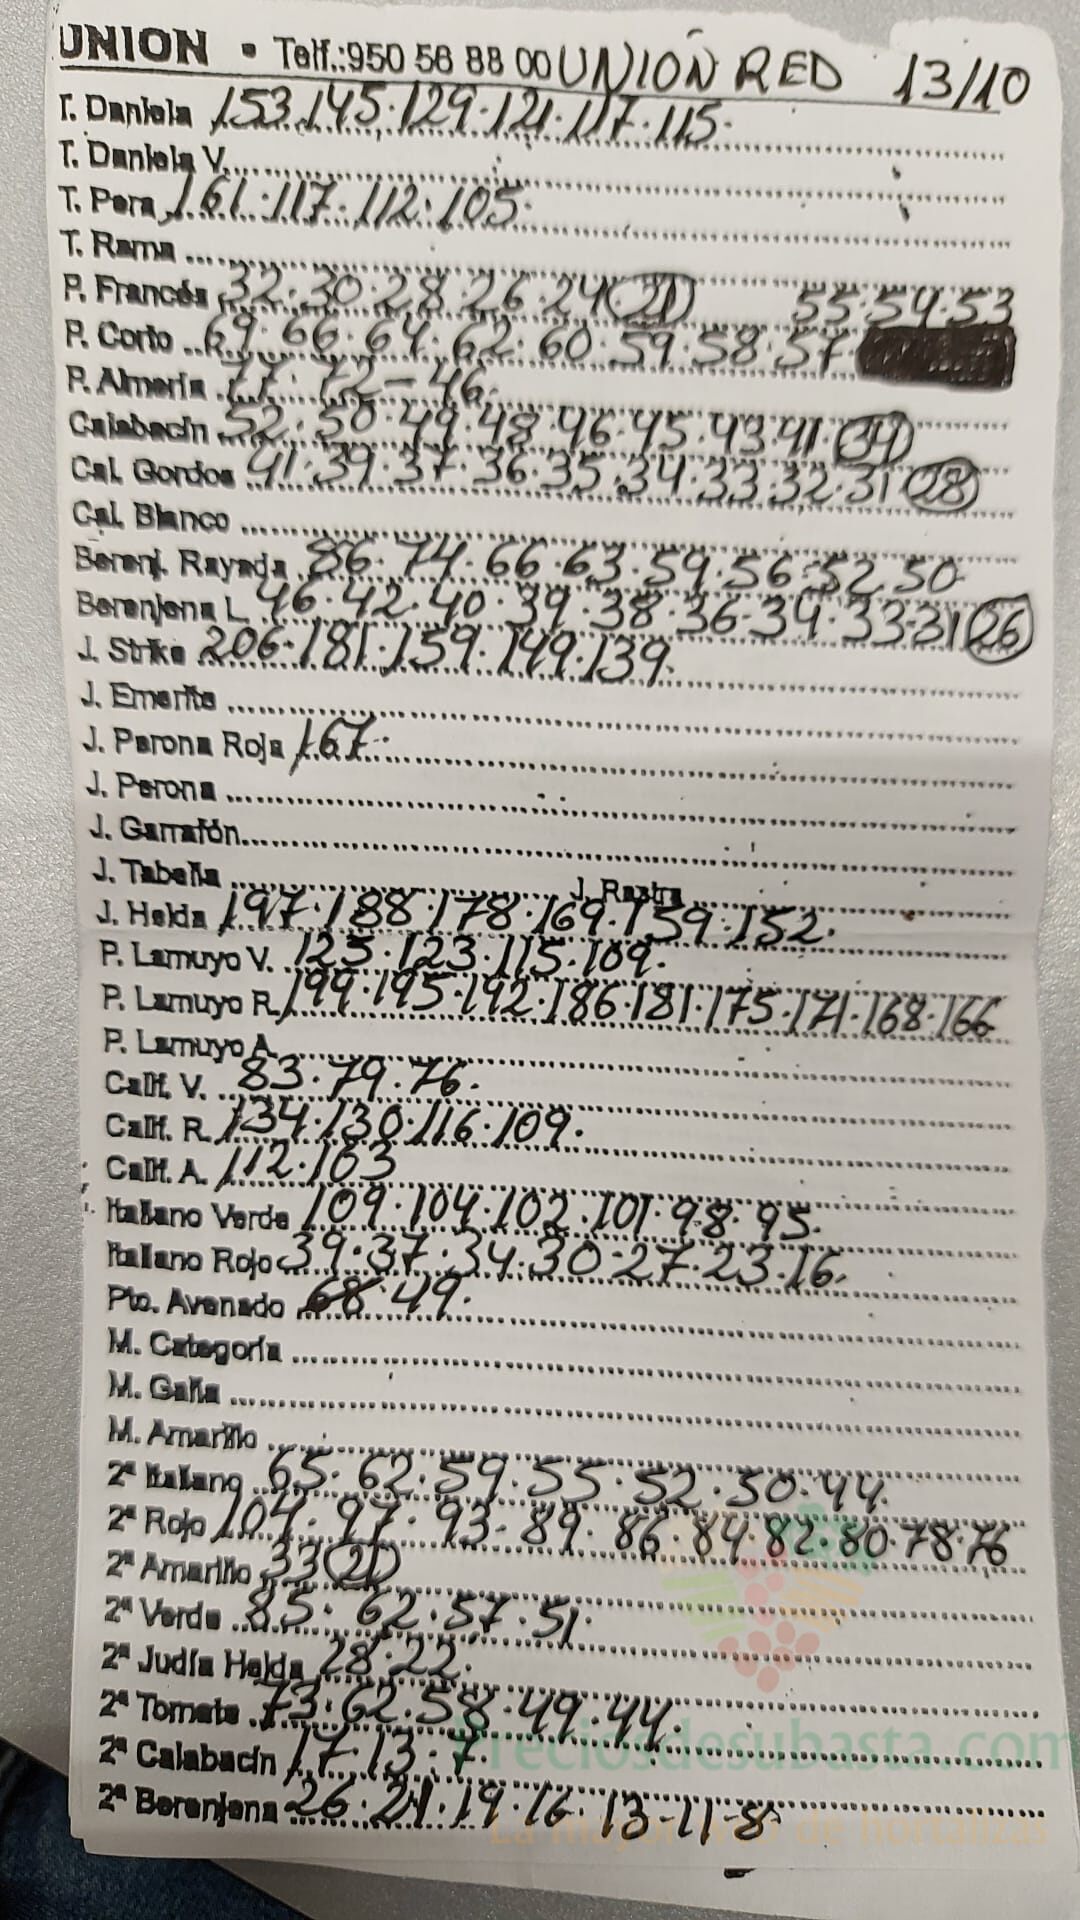 UNION • Telf.:950 56 88 00 UNIÓN RED 13/10
T. Daniela 153.145.129.121.117.115.
T. Daniela V.
T. Pera 161.117.112.105.
T. Rama
P. Francés 32.30.28.26.24.(21) 55.54.53
P. Corto 69.66.64.62.60.59.58.57.
P. Almería 77.72-46.
Calabacín 52.50.49.48.46.45.43.41.(34)
Cal. Gordos 41.39.37.36.35.34.33.32.31(28)
Cal. Blanco
Berenj. Rayada 86.74.66.63.59.56.52.50
Berenjena L. 46.42.40.39.38.36.34.33.31(26)
J. Strike 206.181.159.149.139.
J. Emerite
J. Perona Roja 167.
J. Perona
J. Garrafón
J. Tabella J. Rastra
J. Helda 197.188.178.169.159.152.
P. Lamuyo V. 125.123.115.109.
P. Lamuyo R. 199.195.192.186.181.175.171.168.166
P. Lamuyo A.
Calif. V. 83.79.76.
Calif. R. 134.130.116.109.
Calif. A. 112.103
Italiano Verde 109.104.102.101.98.95.
Italiano Rojo 39.37.34.30.27.23.16.
Pto. Avenado 68.49.
M. Categoría
M. Galia
M. Amarillo
2ª Italiano 65.62.59.55.52.50.44.
2ª Rojo 104.97.93.89.86.84.82.80.78.76
2ª Amarillo 33(21)
2ª Verde 85.62.57.51.
2ª Judía Helda 28.22.
2ª Tomate 73.62.58.49.44.
2ª Calabacín 17.13.7.
Preciosdesubasta.com
2ª Berenjena 26.21.19.16.13-11-8
La mayor web de hortalizas